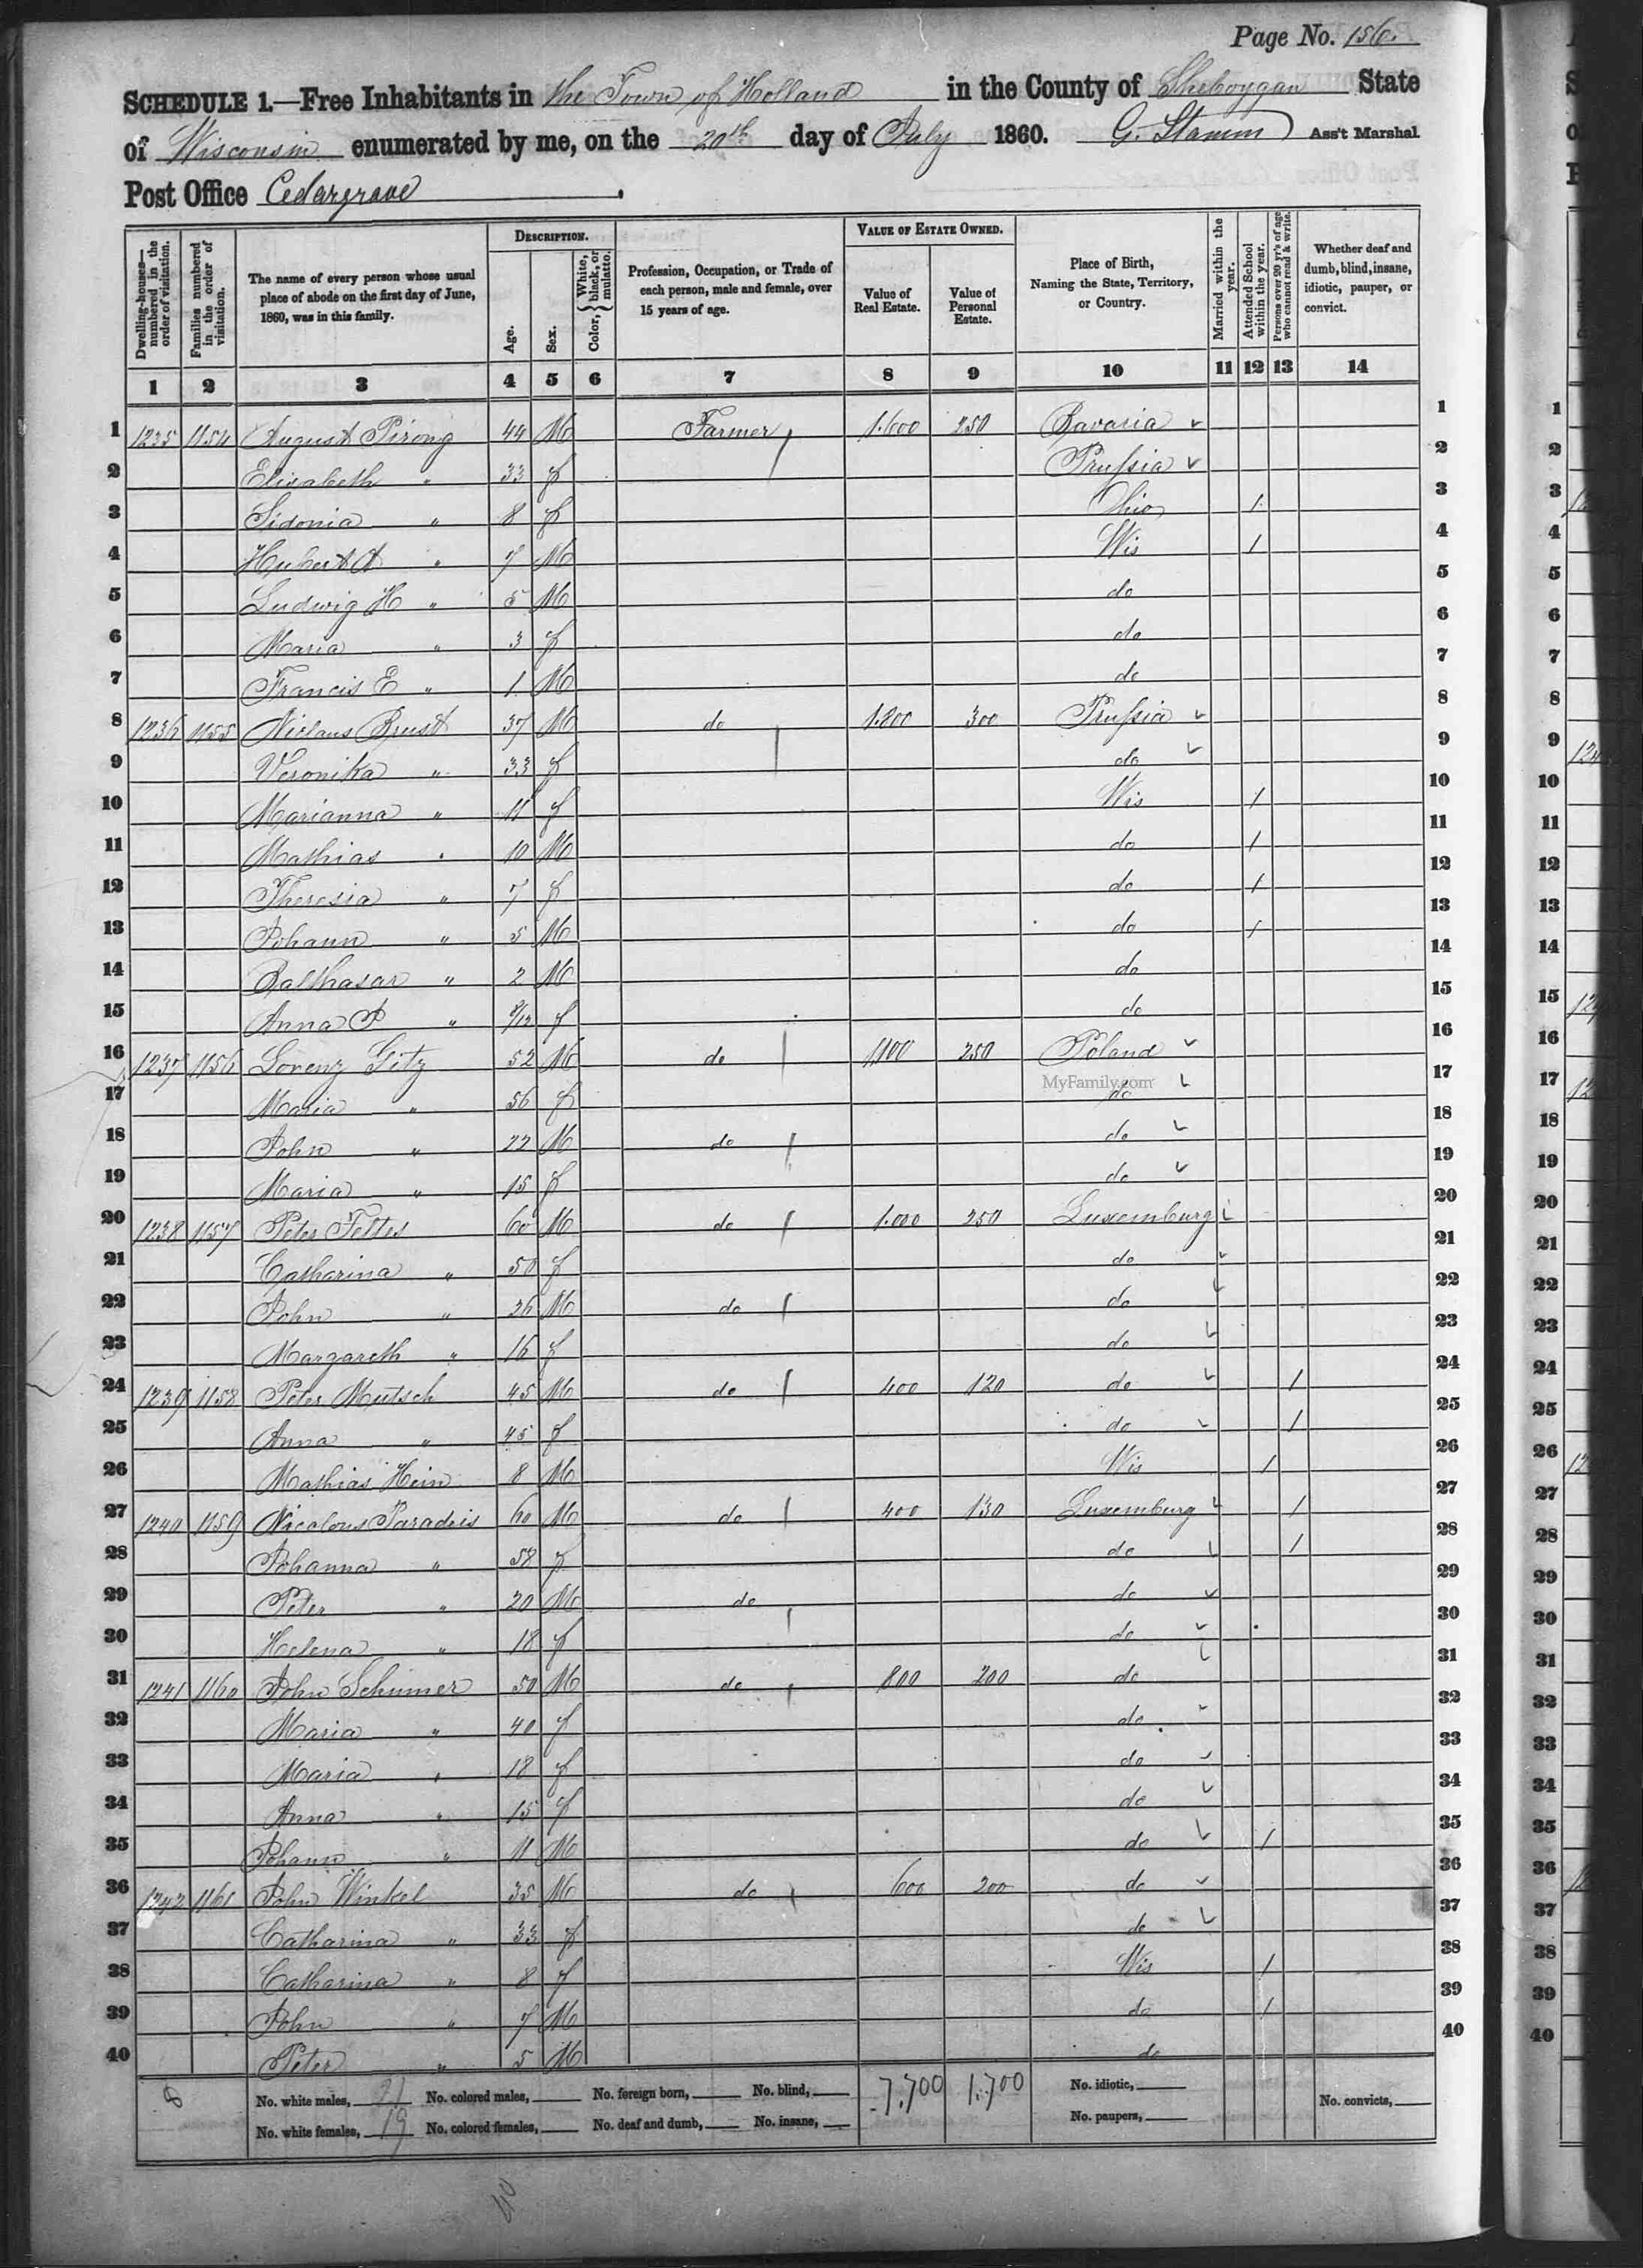 Page No. 156.
SCHEDULE 1.—Free Inhabitants in the Town of Holland in the County of Sheboygan State
of Wisconsin enumerated by me, on the 20th day of July 1860. G. Stamm Ass't Marshal
Post Office Cedargrove.
DESCRIPTION. VALUE OF ESTATE OWNED.
Dwelling-houses—numbered in the order of visitation. Families numbered in the order of visitation. The name of every person whose usual place of abode on the first day of June, 1860, was in this family. Age. Sex. Color, {White, black, or mulatto. Profession, Occupation, or Trade of each person, male and female, over 15 years of age. Value of Real Estate. Value of Personal Estate. Place of Birth, Naming the State, Territory, or Country. Married within the year. Attended School within the year. Persons over 20 yr's of age who cannot read & write. Whether deaf and dumb, blind, insane, idiotic, pauper, or convict.
1 2 3 4 5 6 7 8 9 10 11 12 13 14
1 1235 1154 August Pirong 44 M Farmer 1.600 250 Bavaria 1
2 Elisabeth " 33 f Prussia 2
3 Sidonia " 8 f Ohio 1 3
4 Hubert A " 7 M Wis 1 4
5 Ludwig H " 5 M do 5
6 Maria " 3 f do 6
7 Francis E " 1 M do 7
8 1236 1155 Niclaus Brust 37 M do 1.800 300 Prussia 8
9 Veronika " 33 f do 9
10 Marianna " 11 f Wis 1 10
11 Mathias " 10 M do 1 11
12 Theresia " 7 f do 1 12
13 Johann " 5 M do 1 13
14 Balthasar " 2 M do 14
15 Anna P " 8/12 f do 15
16 1237 1156 Lorenz Gitz 52 M do 1100 250 Poland 16
17 Maria " 56 f do 17
MyFamily.com
18 John " 22 M do do 18
19 Maria " 15 f do 19
20 1238 1157 Peter Feltes 60 M do 1.000 250 Luxemburg 20
21 Catharina " 50 f do 21
22 John " 26 M do do 22
23 Margareth " 16 f do 23
24 1239 1158 Peter Mutsch 45 M do 400 120 do 1 24
25 Anna " 45 f do 1 25
26 Mathias Hein 8 M Wis 1 26
27 1240 1159 Nicolous Paradeis 60 M do 400 130 Luxemburg 1 27
28 Johanna " 58 f do 1 28
29 Peter " 20 M do do 29
30 Helena " 18 f do 30
31 1241 1160 John Schumer 50 M do 800 200 do 31
32 Maria " 40 f do 32
33 Maria " 18 f do 33
34 Anna " 15 f do 34
35 Johann " 11 M do 1 35
36 1242 1161 John Winkel 35 M do 600 200 do 36
37 Catharina " 33 f do 37
38 Catharina " 8 f Wis 1 38
39 John " 7 M do 1 39
40 Peter " 5 M do 40
8 No. white males, 21 No. colored males, No. foreign born, No. blind, 7.700 1.700 No. idiotic, No. convicts,
No. white females, 19 No. colored females, No. deaf and dumb, No. insane, No. paupers,
40